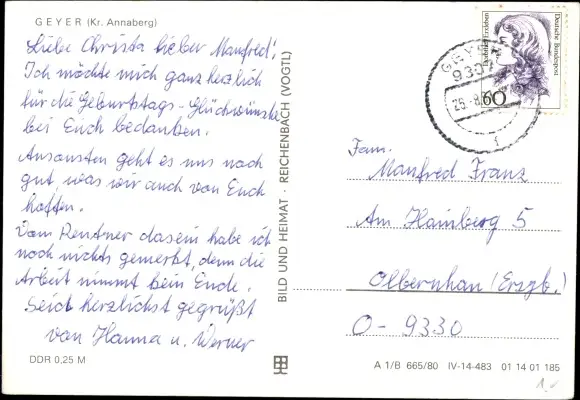 GEYER (Kr. Annaberg)
Liebe Christa lieber Manfred!
Ich möchte mich ganz herzlich
für die Geburtstags-Glückwünsche
bei Euch bedanken.
Ansonsten geht es uns noch
gut, was wir auch von Euch
hoffen.
Vom Rentner dasein habe ich
noch nichts gemerkt, denn die
Arbeit nimmt kein Ende.
Seid herzlichst gegrüßt
von Hanna u. Werner
DDR 0,25 M
BILD UND HEIMAT · REICHENBACH (VOGTL)
Deutsche Bundespost
60
GEYER
Fam.
Manfred Franz
Am Hainberg 5
Olbernhau (Erzgb.)
O-9330
A 1/B 665/80 IV-14-483 01 14 01 185